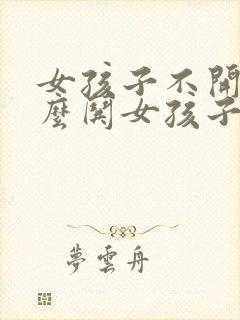 女孩子不
麼関女孩子
夢雲舟